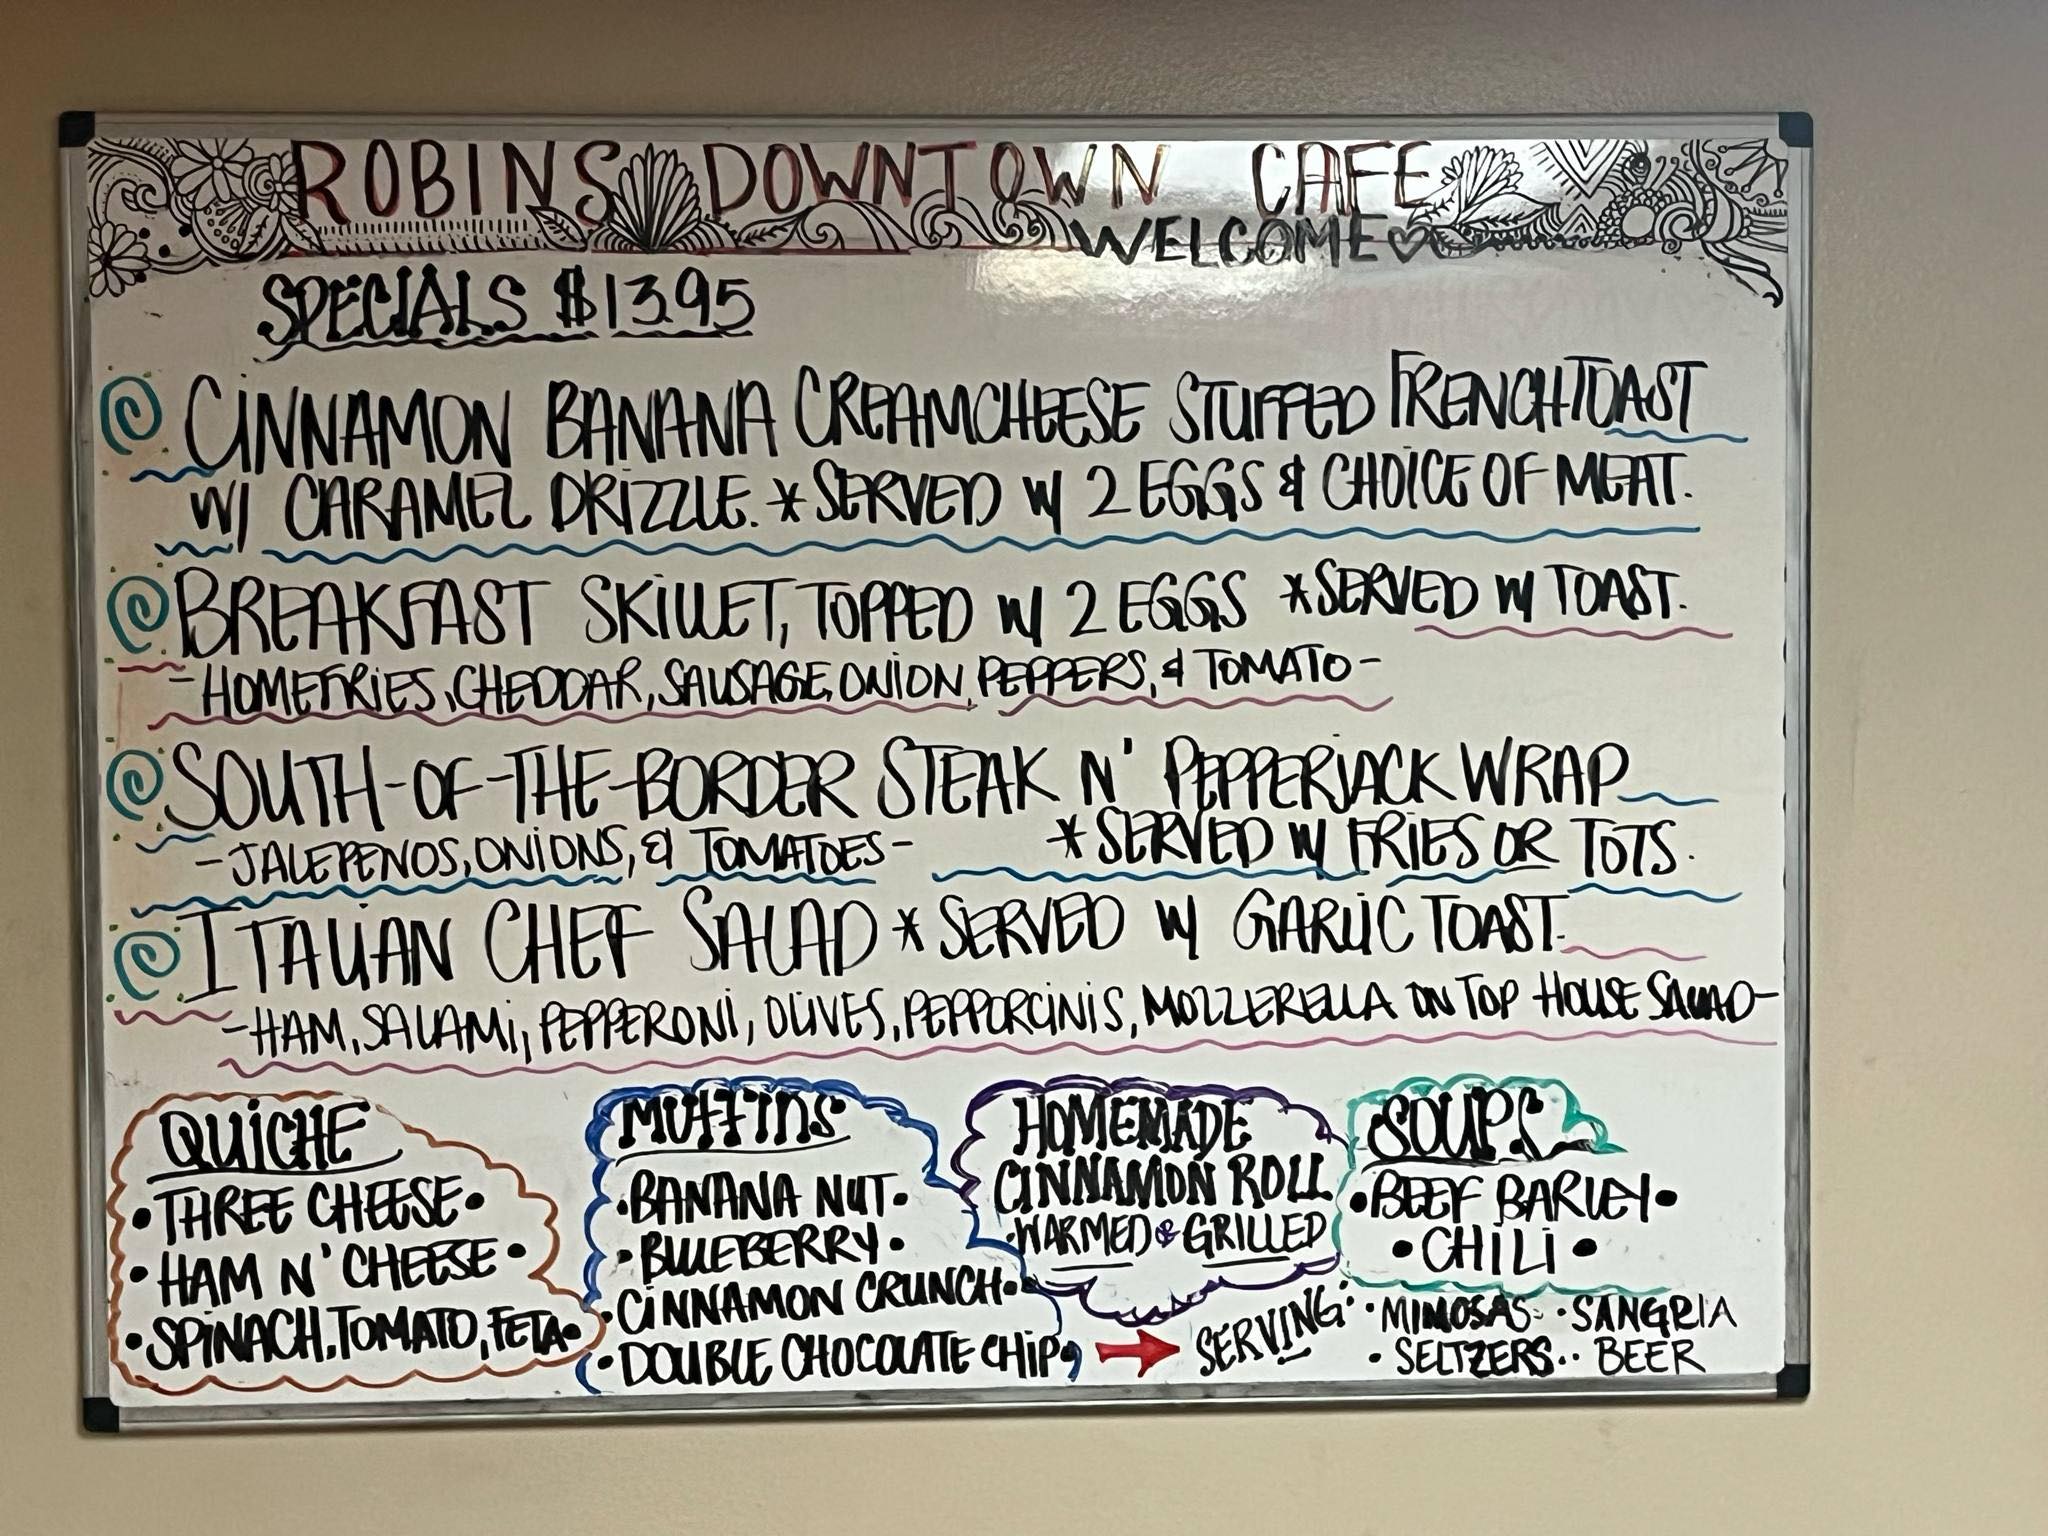 ROBINS DOWNTOWN CAFE
WELCOME
SPECIALS $13.95
CINNAMON BANANA CREAMCHEESE STUFFED FRENCH TOAST
W/ CARAMEL DRIZZLE. *SERVED W/ 2 EGGS & CHOICE OF MEAT.
BREAKFAST SKILLET, TOPPED W/ 2 EGGS *SERVED W/ TOAST.
- HOMEFRIES, CHEDDAR, SAUSAGE, ONION, PEPPERS, & TOMATO -
SOUTH-OF-THE-BORDER STEAK N' PEPPERJACK WRAP
- JALEPENOS, ONIONS, & TOMATOES - *SERVED W/ FRIES OR TOTS.
ITALIAN CHEF SALAD *SERVED W/ GARLIC TOAST.
- HAM, SALAMI, PEPPERONI, OLIVES, PEPPORCINIS, MOZZERELLA ON TOP HOUSE SALAD -
QUICHE
• THREE CHEESE •
• HAM N' CHEESE •
• SPINACH, TOMATO, FETA •
MUFFINS
• BANANA NUT •
• BLUEBERRY •
• CINNAMON CRUNCH •
• DOUBLE CHOCOLATE CHIP •
HOMEMADE
CINNAMON ROLL
• WARMED & GRILLED
SOUPS
• BEEF BARLEY •
• CHILI •
SERVING:
• MIMOSAS • SANGRIA
• SELTZERS • BEER